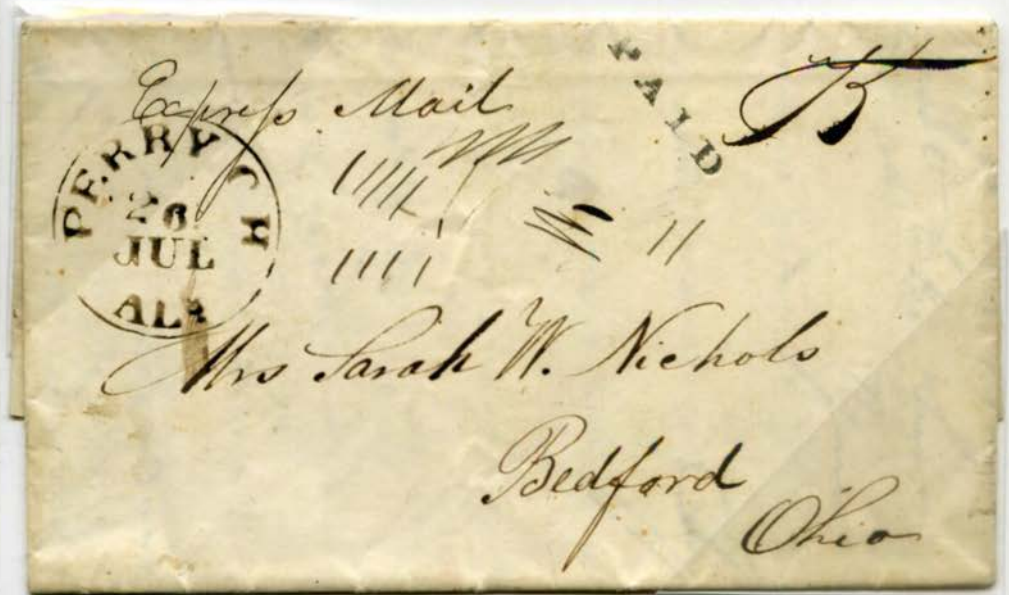 Express Mail
PAID
PERRY C H
26
JUL
ALa
Mrs Sarah W. Nichols
Bedford
Ohio